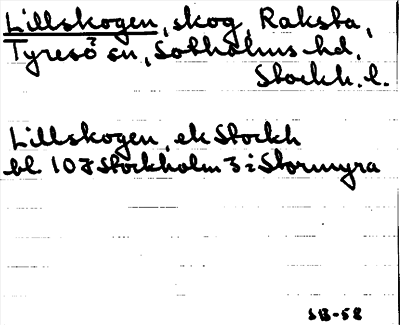 Lillskogen, skog, Raksta,
Tyresö sn, Sotholms hd,
Stockh. l.
Lillskogen, ek Stockh
bl. 10 J Stockholm 3 i Stormyra
SB-58